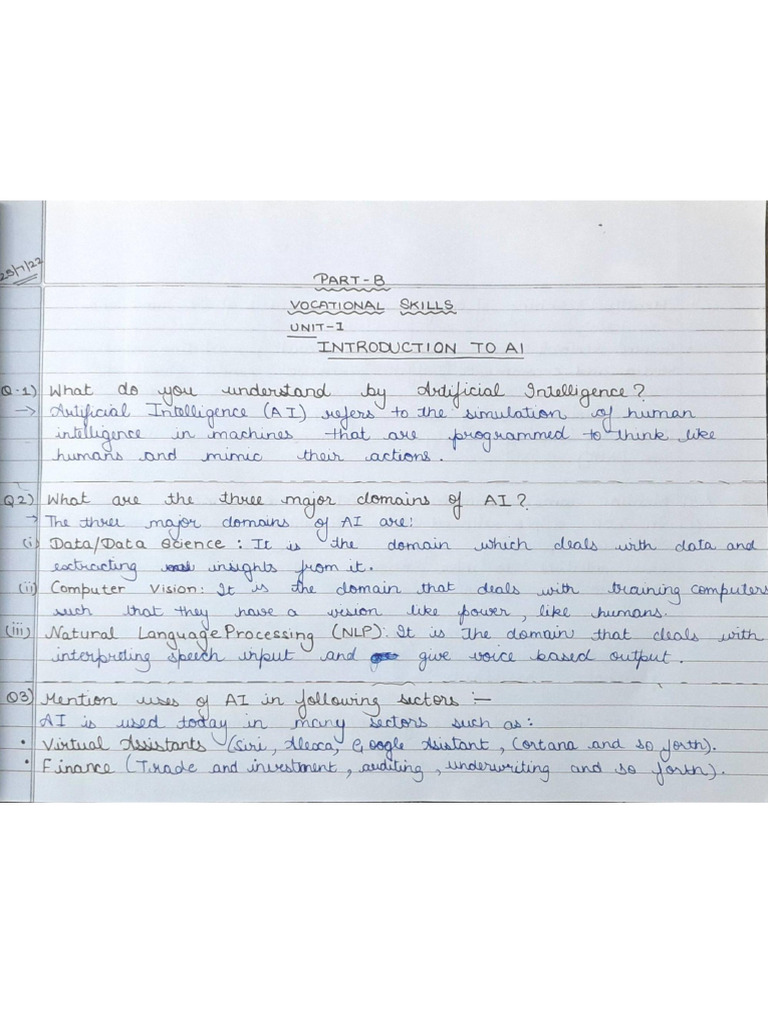 25/7/22
PART-B
VOCATIONAL SKILLS
UNIT-I
INTRODUCTION TO AI
Q.1) What do you understand by Artificial Intelligence?
→ Artificial Intelligence (AI) refers to the simulation of human
intelligence in machines that are programmed to think like
humans and mimic their actions.
Q2) What are the three major domains of AI?
→ The three major domains of AI are:
(i) Data/Data Science : It is the domain which deals with data and
extracting insights from it.
(ii) Computer Vision: It is the domain that deals with training computers
such that they have a vision like power, like humans.
(iii) Natural Language Processing (NLP): It is the domain that deals with
interpreting speech input and give voice based output.
Q3) Mention uses of AI in following sectors :-
AI is used today in many sectors such as:
• Virtual Assistants (Siri, Alexa, Google Asistant, Cortana and so forth).
• Finance (Trade and investment, auditing, underwriting and so forth).